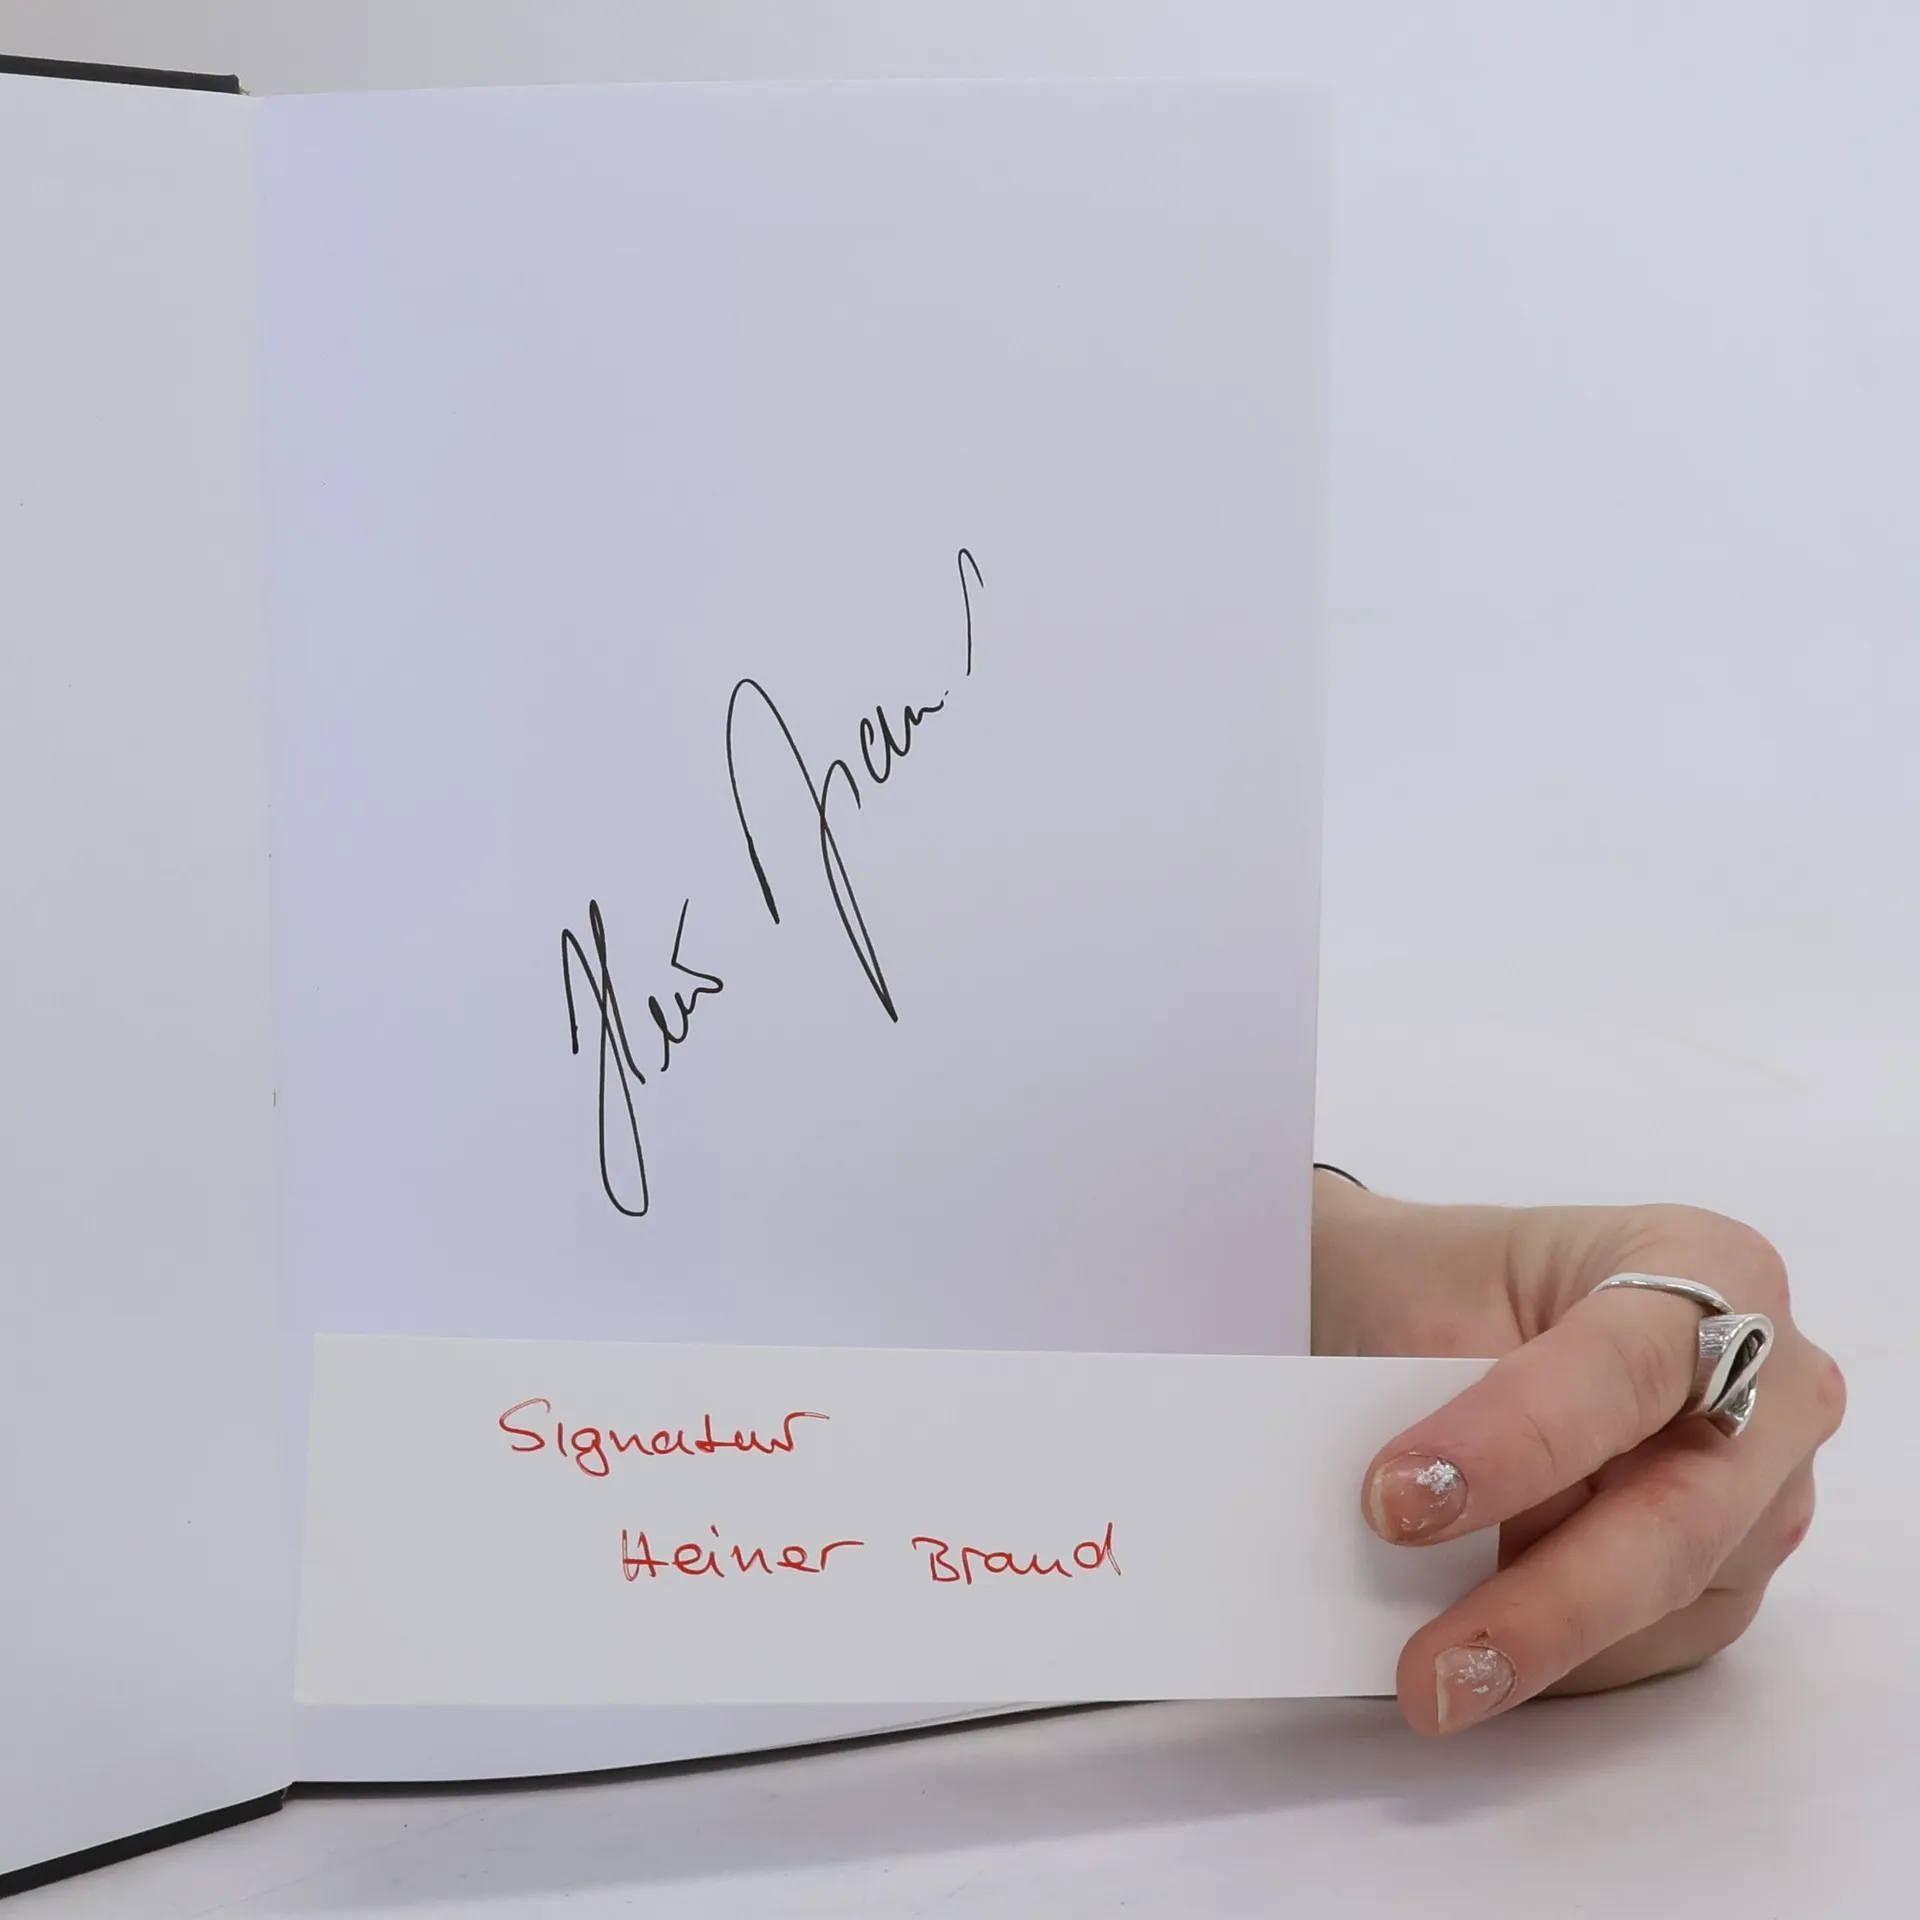 Heiner Brand
Signatur
Heiner Brand